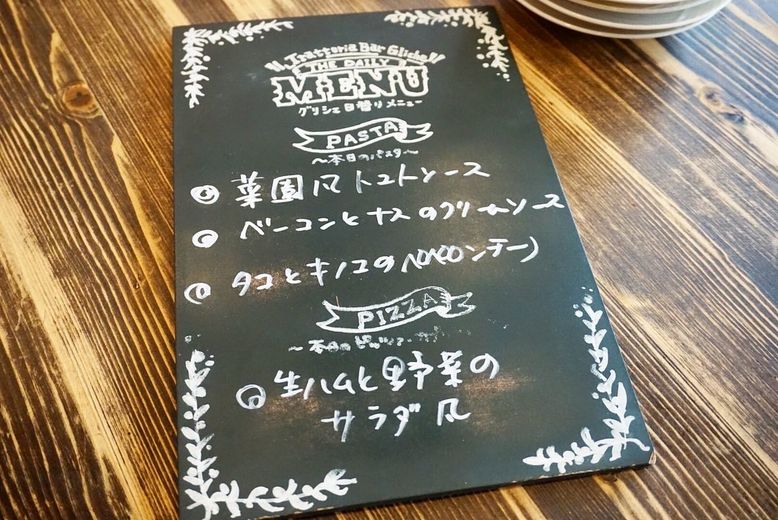 Trattoria Bar Gliche
THE DAILY
MENU
グリシェ日替りメニュー
PASTA
～本日のパスタ～
菜園風トマトソース
ベーコンとナスのクリームソース
タコとキノコのペペロンチーノ
PIZZA
～本日の
生ハムと野菜の
サラダ風